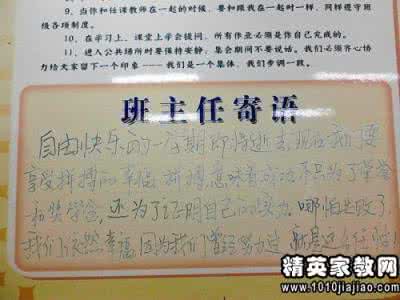 9、当你和任课教师在一起的时候，要和跟我在一起时一样，同样遵守班
级各项制度。
10、在学习上，课堂上学会提问，所有作业必须是你自己完成的。
11、进入公共场所时要保持安静；集会期间不要说话。我们必须齐心协
力给大家留下一个印象——我们是一个集体，我们步调一致。
班主任寄语
自由快乐的一星期即将逝去 现在我们要
享受拼搏的幸福 拼搏 意味着成功 不只为了荣誉
和奖学金，还为了证明自己的实力。哪怕失败了
我们依然幸福 因为我们曾经努力过
精英家教网
www.1010jiajiao.com